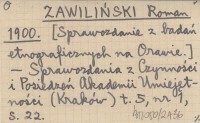 ZAWILIŃSKI Roman
1900. [Sprawozdanie z badań
etnograficznych na Orawie.]
— Sprawozdania z Czynności
i Posiedzeń Akademii Umiejęt-
ności (Kraków) t. 5, nr 1,
s. 22.